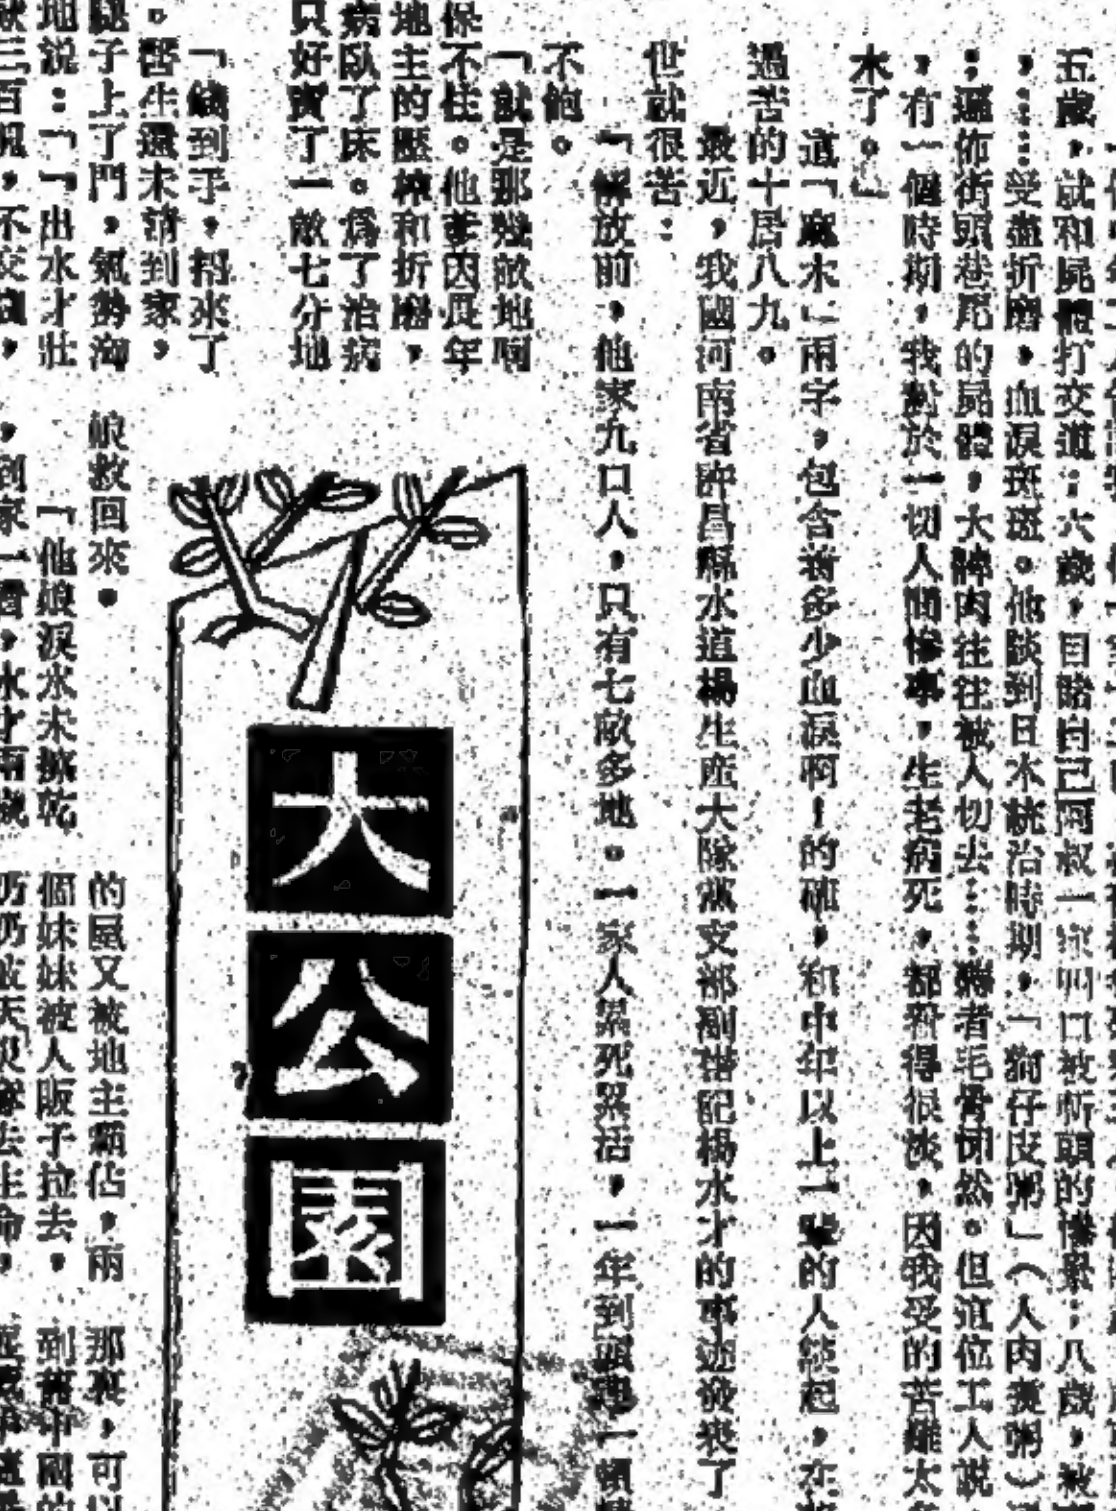 五歲，就和屍體打交道；六歲，目睹自己阿叔一家四口被斬頭的慘景；八歲，被
，……受盡折磨，血淚斑斑。他談到日本統治時期，「狗仔皮粥」（人肉煲粥）
；遍佈街頭巷尾的屍體，大髀肉往往被人切去……聽者毛骨悚然。但這位工人說
，有一個時期，我對於一切人間慘事，生老病死，都看得很淡，因我受的苦難太
木了。」
這「麻木」兩字，包含着多少血淚啊！的確，和中年以上一輩的人談起，在
過苦的十居八九。
最近，我國河南省許昌縣水道楊生産大隊黨支部副書記楊水才的事迹發表了
世就很苦：
「解放前，他家九口人，只有七畝多地。一家人累死累活，一年到頭
不飽。
「就是那幾畝地啊
保不住。他爹因長年
地主的壓榨和折磨，
病臥了床。爲了治病
只好賣了一畝七分地
「錢到手，招來了
。醫生還未請到家，
腿子上了門，氣勢洶
地說：「『出水才壯
三百塊，不交
大公園
娘救回來。
「他娘淚水未擦乾
，到家一看，水才兩歲
的屋又被地主霸佔，兩
個妹妹被人販子拉去，
那裏，可以
到舊中國的